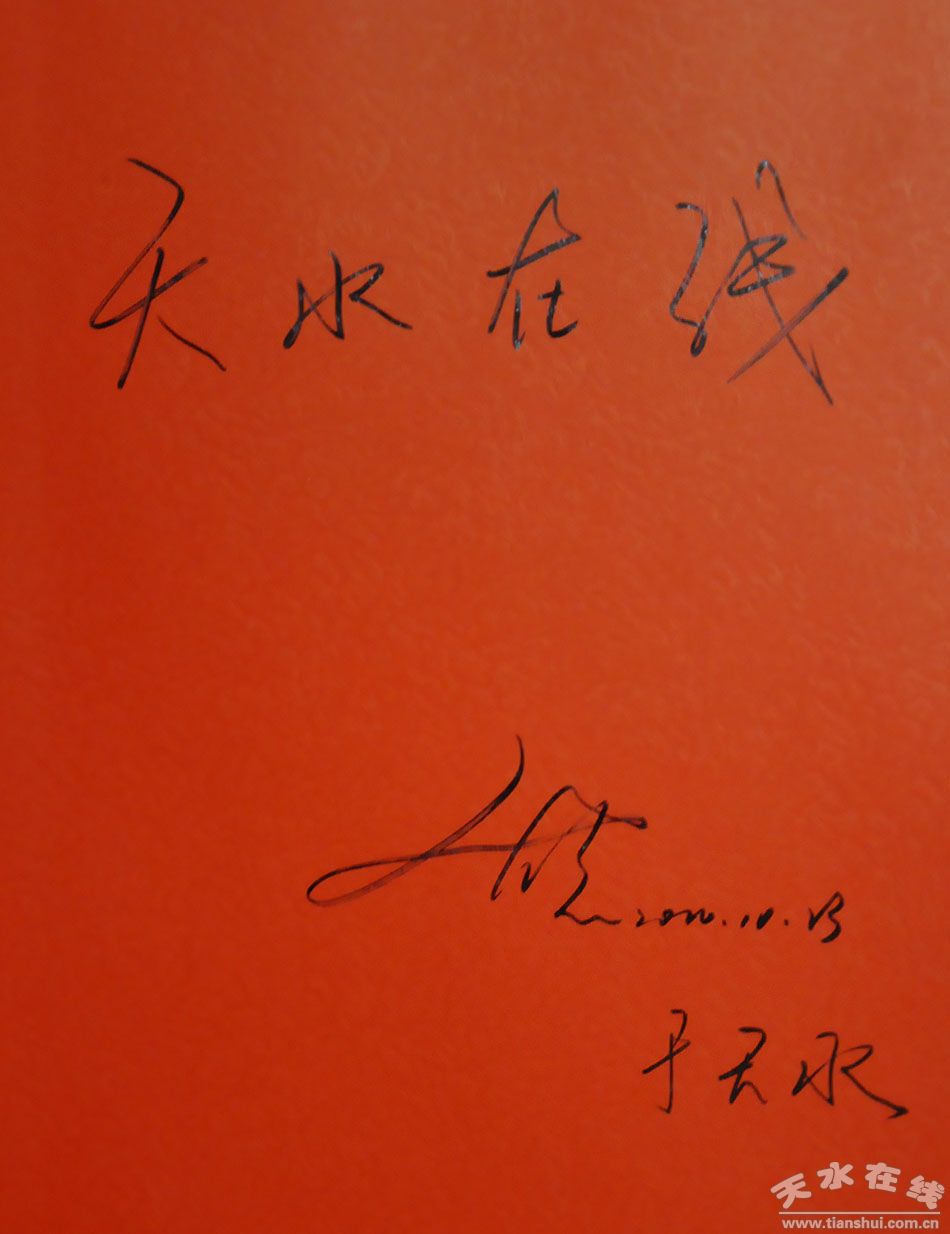 天水在线
2010.10.13
于天水
天水在线
www.tianshui.com.cn